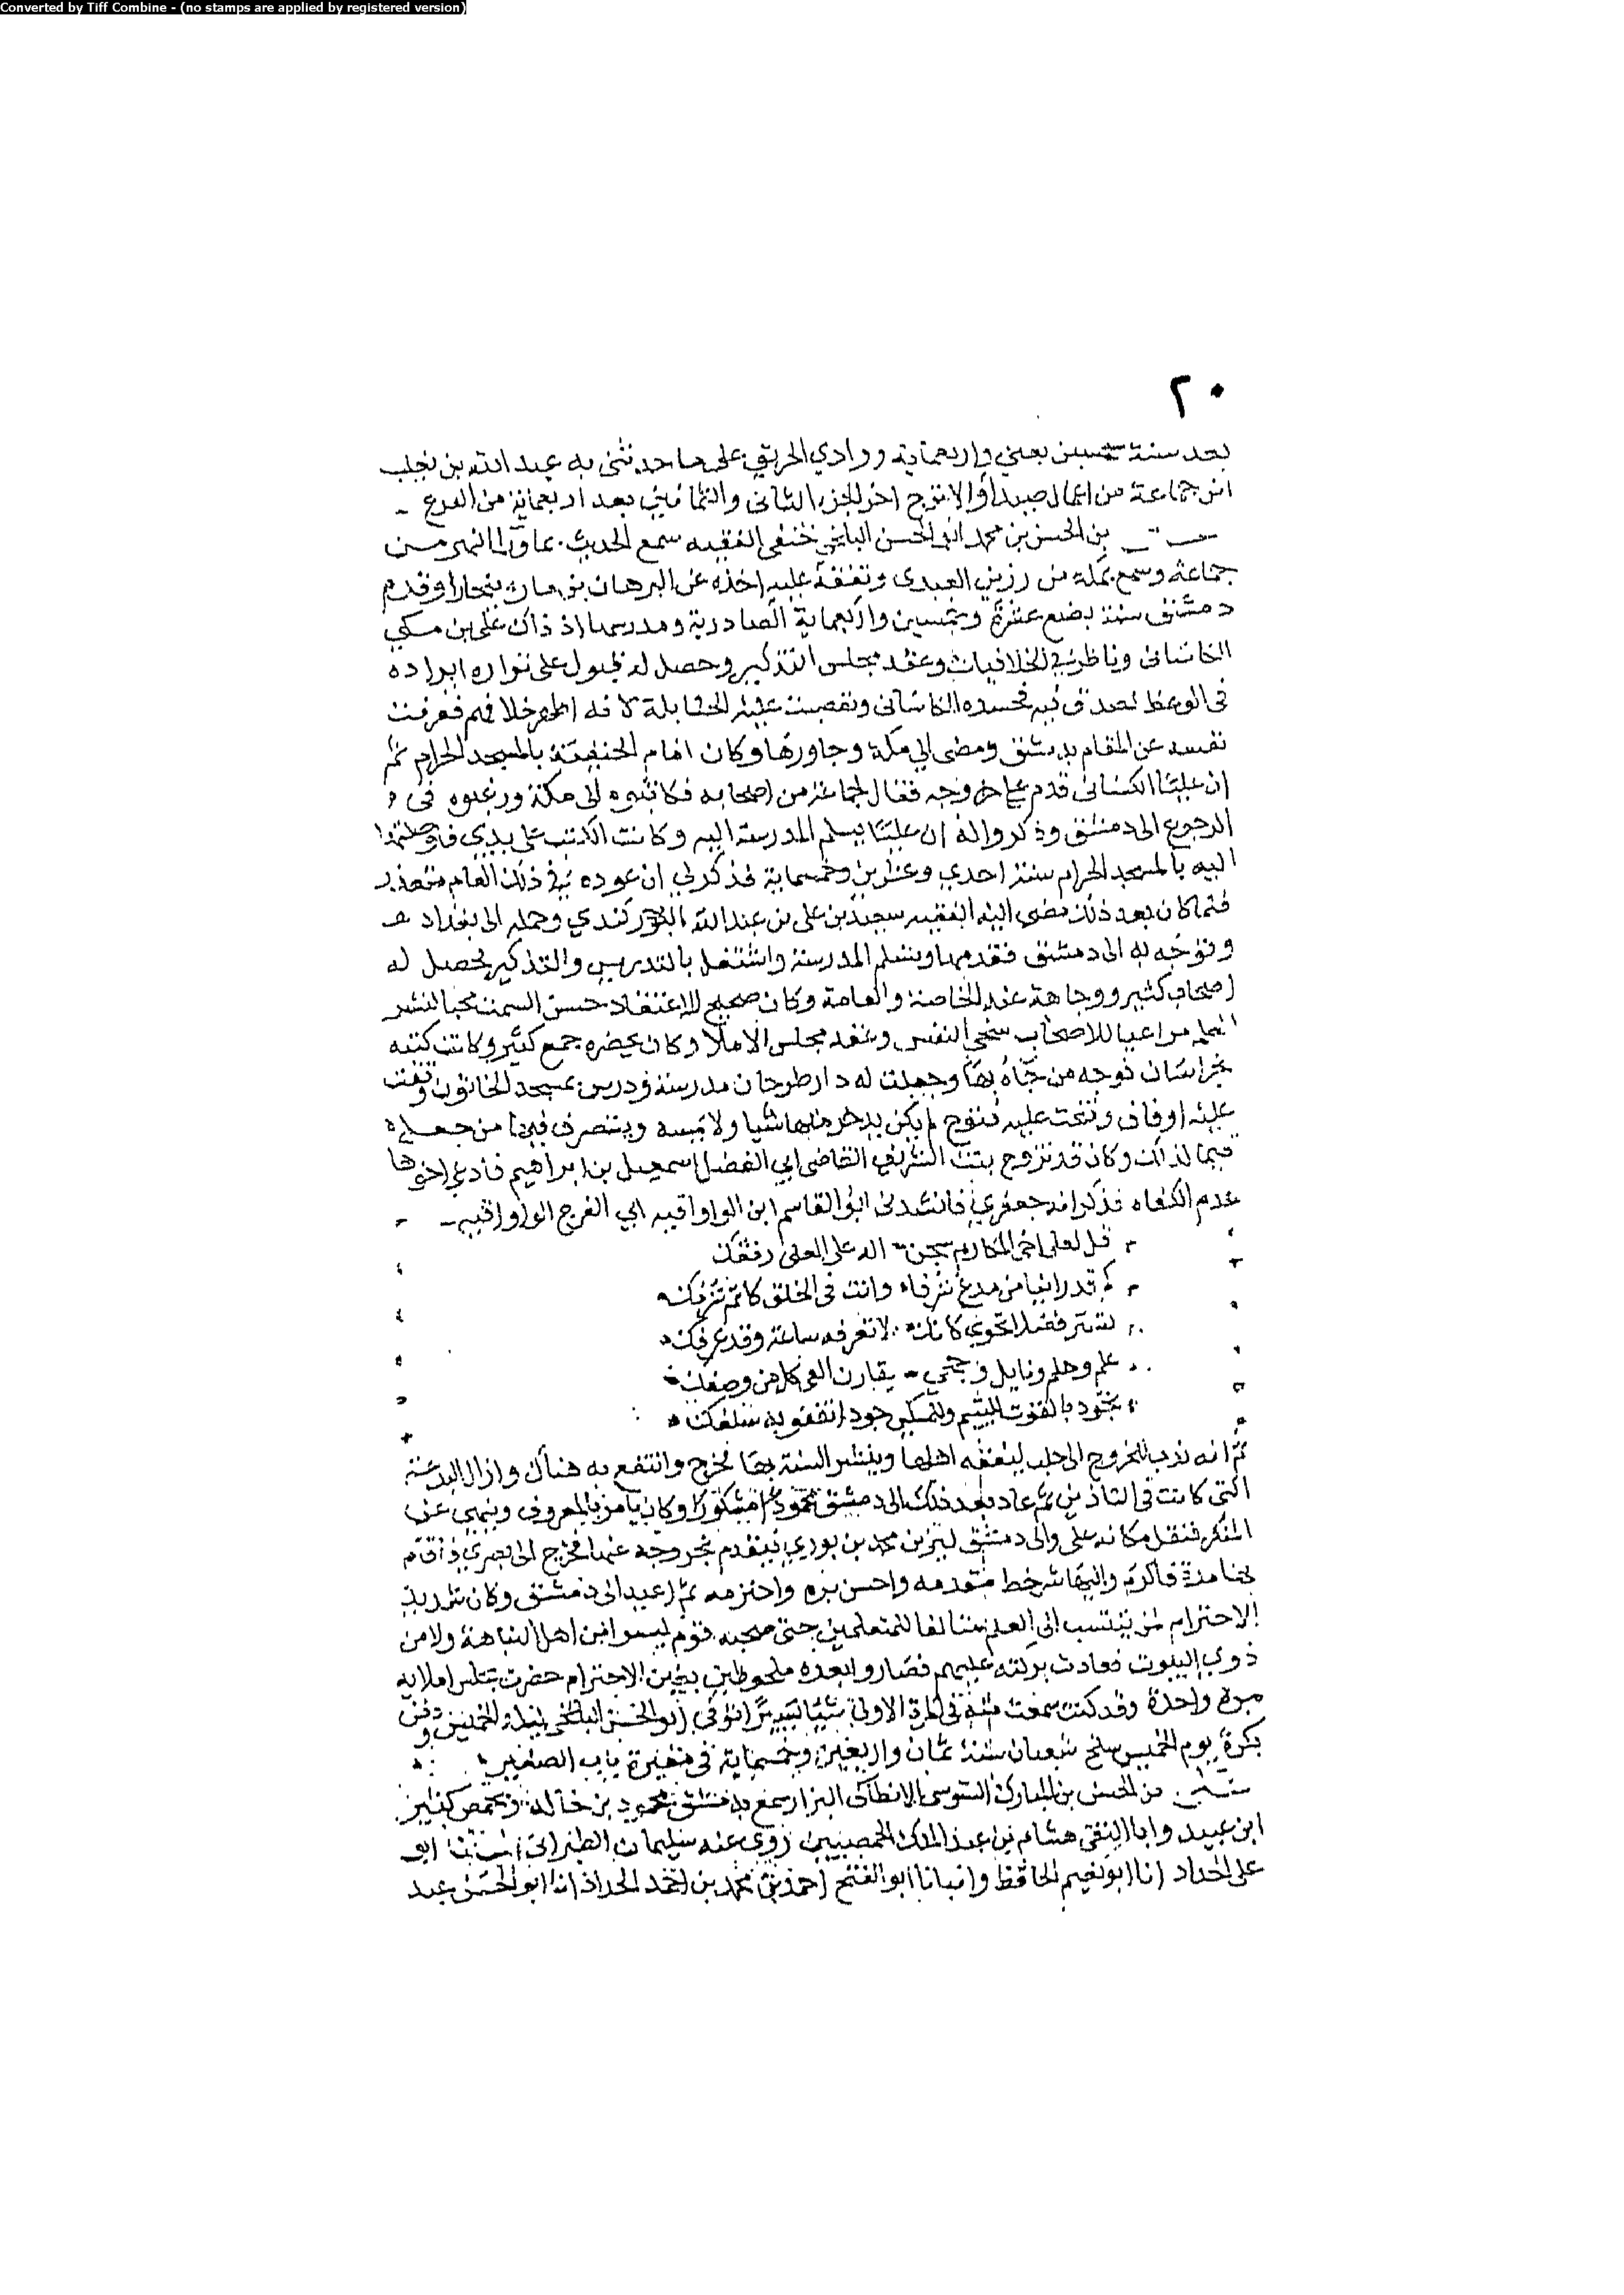 Converted by Tiff Combine - (no stamps are applied by registered version)
٢٠
بعد سنة خمسين يعني واربعماية ووادي الحريق على ما حدثني به عبد الله بن
جماعة من اعمال صيدا اخر الجزء الثاني والثمانين بعد اربعماية من الفرع
بن الحسن بن محمد ابو الحسن البلخي الحنفي الفقيه سمع الحديث بما ورا النهر من
جماعة وسمع بمكة من رزين العبدري وتفقه عليه اخذه عن البرهان بن ببخارا وقدم
دمشق سنة بضع عشرة وخمسين واربعماية الصادرية ومدرسها اذ ذاك علي بن مكي
الكاساني وناظر في الخلافيات وعقد مجلس التذكير وحصل له قبول على ايراده
في الوعظ لصدق فيه فحسده الكاساني وتعصبت عليه الحنابلة لانه اظهر خلافهم فعزفت
نفسه عن المقام بدمشق ومضى الي مكة وجاور بها وكان امام الحنفية بالمسجد الحرام ثم
ان عليا الكاساني قدم على خروجه فقال لجماعة من اصحابه فكاتبوه الى مكة ورغبوه في
الرجوع الى دمشق وذكروا له ان عليا يسلم المدرسة اليه وكانت الكتب على يدي فاوصلتها
اليه بالمسجد الحرام سنة احدي وعشرين وخمسماية فذكر لي ان عوده في ذلك العام متعذر
فلما كان بعد ذلك مضى اليه الفقيه سعيد بن علي بن عبد الله وحمله الى بغداد
وتوجه به الى دمشق فقدمها وتسلم المدرسة واشتغل بالتدريس والتذكير فحصل له
اصحاب كثير ووجاهة عند الخاصة والعامة وكان صحيح الاعتقاد حسن السمت محبا لنشر
العلم مراعيا للاصحاب سخي النفس وعقد مجلس الاملا وكان يحضره جمع كثير وكانت كتبه
بخراسان فوجه من جاه بها وجعلت له دار طرخان مدرسة ودرس بمسجد الخاتون وقفت
عليه اوقاف وفتحت عليه فتوح لم يكن يدخر منها شيا ولا يمسه ويتصرف فيها من جعله
قيما لذلك وكان قد تزوج بنت الشريف القاضي ابي الفضل اسمعيل بن ابراهيم فادعي اخوها
عدم الكفاه فذكر انه جعفري فانشدني ابو القاسم ابن الواواقيه ابي الفرج الواواقيه
قل لعلي اخي المكارم اله على العلى رفعك
كم قد راينا من مدع شرفا وانت في الخلق كاتم شرفك
تستر فضلا تحوي كانك لا تعرفه ساعة وقد عرفك
علم وحلم ونايل وحجي يقارن كل من وصفك
تجود بالقوت لليتيم وللمسكين جودا تقفو به سلفك
ثم انه ندب للخروج الى حلب ليفقه اهلها وينشر السنة بها فخرج وانتفع به هناك وازال البدعة
التي كانت في التاذين ثم عاد بعد ذلك الى دمشق محمودا مشكورا وكان يامر بالمعروف وينهي عن
المنكر فثقل مكانه على والى دمشق محمد بن بوري فتقدم بخروجه عنها فخرج الى بصري فاقام
بها مدة فاكرم واليها مقدمه واحسن بره واحترمه ثم اعيد الى دمشق وكان شديد
الاحترام لمن ينتسب الى العلم متالفا للمتعلمين حتى صحبه قوم ليسوا من اهل النباهة ولا من
ذوي البيوت فعادت بركته عليهم فصاروا بعده ملحوظين بعين الاحترام حضرت مجلس املايه
مرة واحدة وقد كنت سمعت منه في المرة الاولي شيئا يسيرا توفي ابو الحسن البلخي ليلة الخميس ودفن
بكرة يوم الخميس سلخ شعبان سنة ثمان واربعين وخمسماية في مقبرة باب الصغير
بن الحسن بن المبارك السوسي الانطاكي البزار سمع بدمشق محمود بن خالد وبحمص كثير
ابن عبيد وابا التقى هشام بن عبد الملك الحمصيين روى عنه سليمان الطبراني انبانا ابو
علي الحداد انا ابو نعيم الحافظ وانبانا ابو الفتح احمد بن محمد بن احمد الحداد انا ابو الحسن عبد